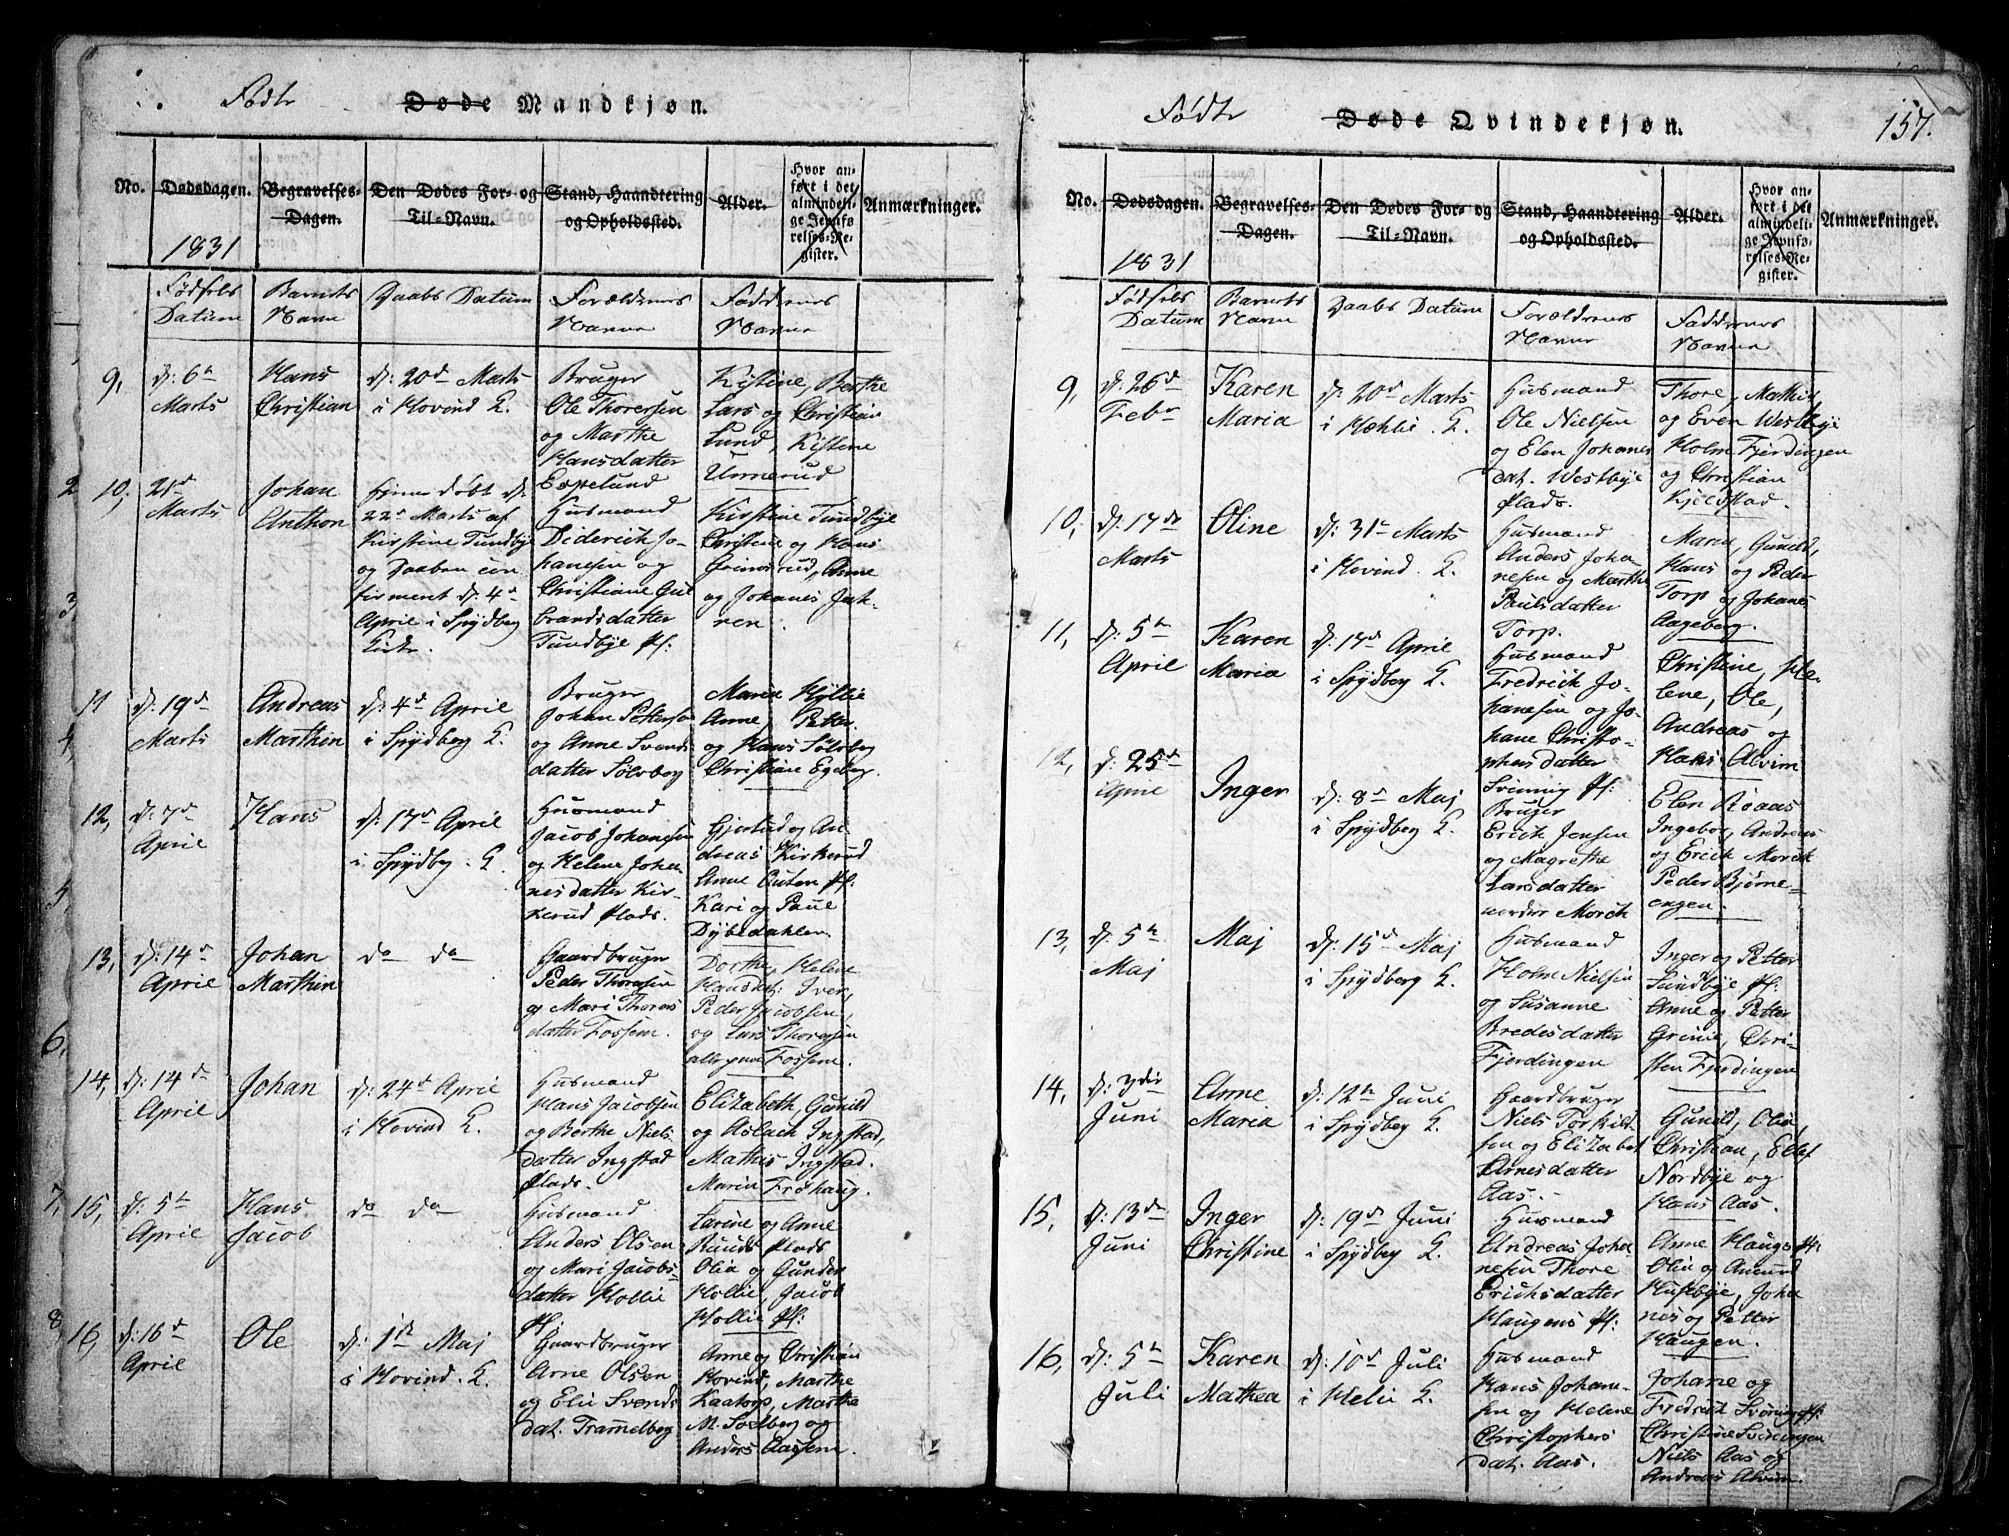 Født Døde Mandkjøn.
No.
Dødsdagen.
1831
Begravelses-
Dagen.
Den Dødes For- og
Til-Navn.
Stand, Haandtering
og Opholdssted.
Alder.
Hvor an-
ført i det
almindeli-
ge Jevnfø
relses-Re-
gister.
Anmærkninger.
Fødsels
Datum
Barnets
Navn
Daabs Datum
Forældrenes
Navne
Faddernes
Navne
9,
d: 6te
Marts
Hans
Christian
d: 20de Marts
i Hovind K.
Bruger
Ole Thoresen
og Marthe
Hansdatter
Espelund
Kistine, Berthe
Lars og Christian
Lund, Kistene
Unnerud
10,
21de
Marts
Johan
Anthon
hjemmedøbt d:
22de Marts af
Kirstine Tundbye
og Daaben con
firmeret d: 4de
April i Spydberg
Kirke.
Husmand
Diderich Jo-
hanesen og
Christiane Gul
brandsdatter
Tundbye Pl:
Kirstine Tundbye
Christine og Hans
og Johanes
11
d: 19de
Marts
Andreas
Marthin
d: 4de April
i Spydberg K.
Bruger
Johan Pettersen
og Anne Svends
datter Solberg
Maria Hyllie
Anne, Petter
og Hans Solberg
Christian Egeberg.
12,
d: 7de
April
Hans
d: 17de April
i Spydbg. K.
Husmand
Jacob Johanesen
og Helene Joha
nesdatter Kir-
kerud Plads.
Gjertrud og An
dreas Kirkerud
Anne Outen Pl:
Kari og Paul
Dybedahlen
13,
d: 14de
April
Johan
Marthin
do do
Gaardbruger
Peder Thoresen
og Mari Thores
datter Fossum.
Dorthe, Helene
Hansdat: Iver,
Peder Jacobsen,
og Lars Thoresen
alle paa Fossum.
14,
d: 14de
April
Johan
d: 24de April
i Hovind K.
Husmand
Hans Jacobsen
og Berthe Niels
datter Ingstad
Plads.
Elizabeth, Gunild
og Aslach Ingstad,
Mathis Ingstad.
Maria Frøhaug.
15,
d: 5te
April
Hans
Jacob
do do
Husmand
Anders Olsen
og Mari Jacobs-
datter Hollie
Pl.
Larine og Anne
Ruuds Plads
Olia og Gunder
Hollie, Jacob
Hollie Pl:
16,
d: 16de
April
Ole
d: 1ste Maj
i Hovind. K.
Gaardbruger
Arne Olsen
og Elie Svends
dat. Tramelbrg
Anne og Christian
Hovind, Marthe
Kaatorp, Marthe
M. Solberg og
Anders Aassem.
Født Døde Qvindekjøn. 157.
No.
Dødsdagen.
1831
Begravelses-
Dagen.
Den Dødes For- og
Til-Navn.
Stand, Haandtering
og Opholdssted.
Alder.
Hvor an-
ført i det
almindeli-
ge Jevnfø-
relses-Re-
gister.
Anmærkninger.
Fødsels
Datum
Barnets
Navn
Daabs Datum
Forældrenes
Navne
Faddernes
Navne
9,
d: 26de
Febr
Karen
Maria
d: 20de Marts
i Hæhlie. K.
Husmand
Ole Nielsen
og Elen Johanes
dat. Westbye
Plads.
Thore, Mathis,
og Even Westbye
Holm Fjerdingen
og Christian
Kjeldstad.
10,
d: 17de
Marts
Oline
d: 31te Marts
i Hovind. K.
Husmand
Anders Joha
nesen og Marthe
Paulsdatter
Torp.
Maren, Gunild,
Hans og Peder
Torp og Johanes
Aageberg.
11,
d: 5te
April
Karen
Maria
d: 17de April
i Spydbg K.
Husmand
Fredrich Jo-
hanesen og Jo-
hane Christo-
phersdatter
Svinnig Pl:
Christine, He-
lene, Ole,
Andreas og
Hans Alvim
12,
d: 25de
April
Inger
d: 8de Maj
i Spydbeg K.
Bruger
Erich Jensen
og Magrethe
Larsdatter
nordre Morch
Elen Roaas
Ingebor, Andreas
og Erich Morck
Peder Bjørne-
engen.
13,
d: 5te
Maj
Maj
d: 15de Maj
i Spydberg K.
Husmand
Holm Nielsen
og Susanne
Bredesdatter
Fjerdingen
Inger og Petter
Sundbye Pl:
Anne og Petter
Grinie, Chri-
sten Fjerdingen
14,
d: 3die
Juni
Anne
Maria
d: 12te Juni
i Spydbg K.
Gaardbruger
Niels Torkild
sen og Elizabet
Arnesdatter
Aas.
Gunild, Olia,
Christian, Ellef
Nordbye og
Hans Aas.
15,
d: 13de
Juni
Inger
Christine
d: 19de Juni
i Spydbg K.
Husmand
Andreas Joha
nesen Thore
Erichsdatter
Haugens Pl:
Anne Haugs Pl:
Olia og Amund
Husebye, Joha
nes og Petter
Haugen.
16,
d: 5te
Juli
Karen
Mathea
d: 10de Juli
i Helie K.
Husmand
Hans Johane-
sen og Helene
Christophers
dat. Aas.
Johane og
Fredrick Svinnig Pl:
Christine Svinningen
Niels Aas og
Andreas Alvim.
2
3,
4,
5,
6,
7,
8,